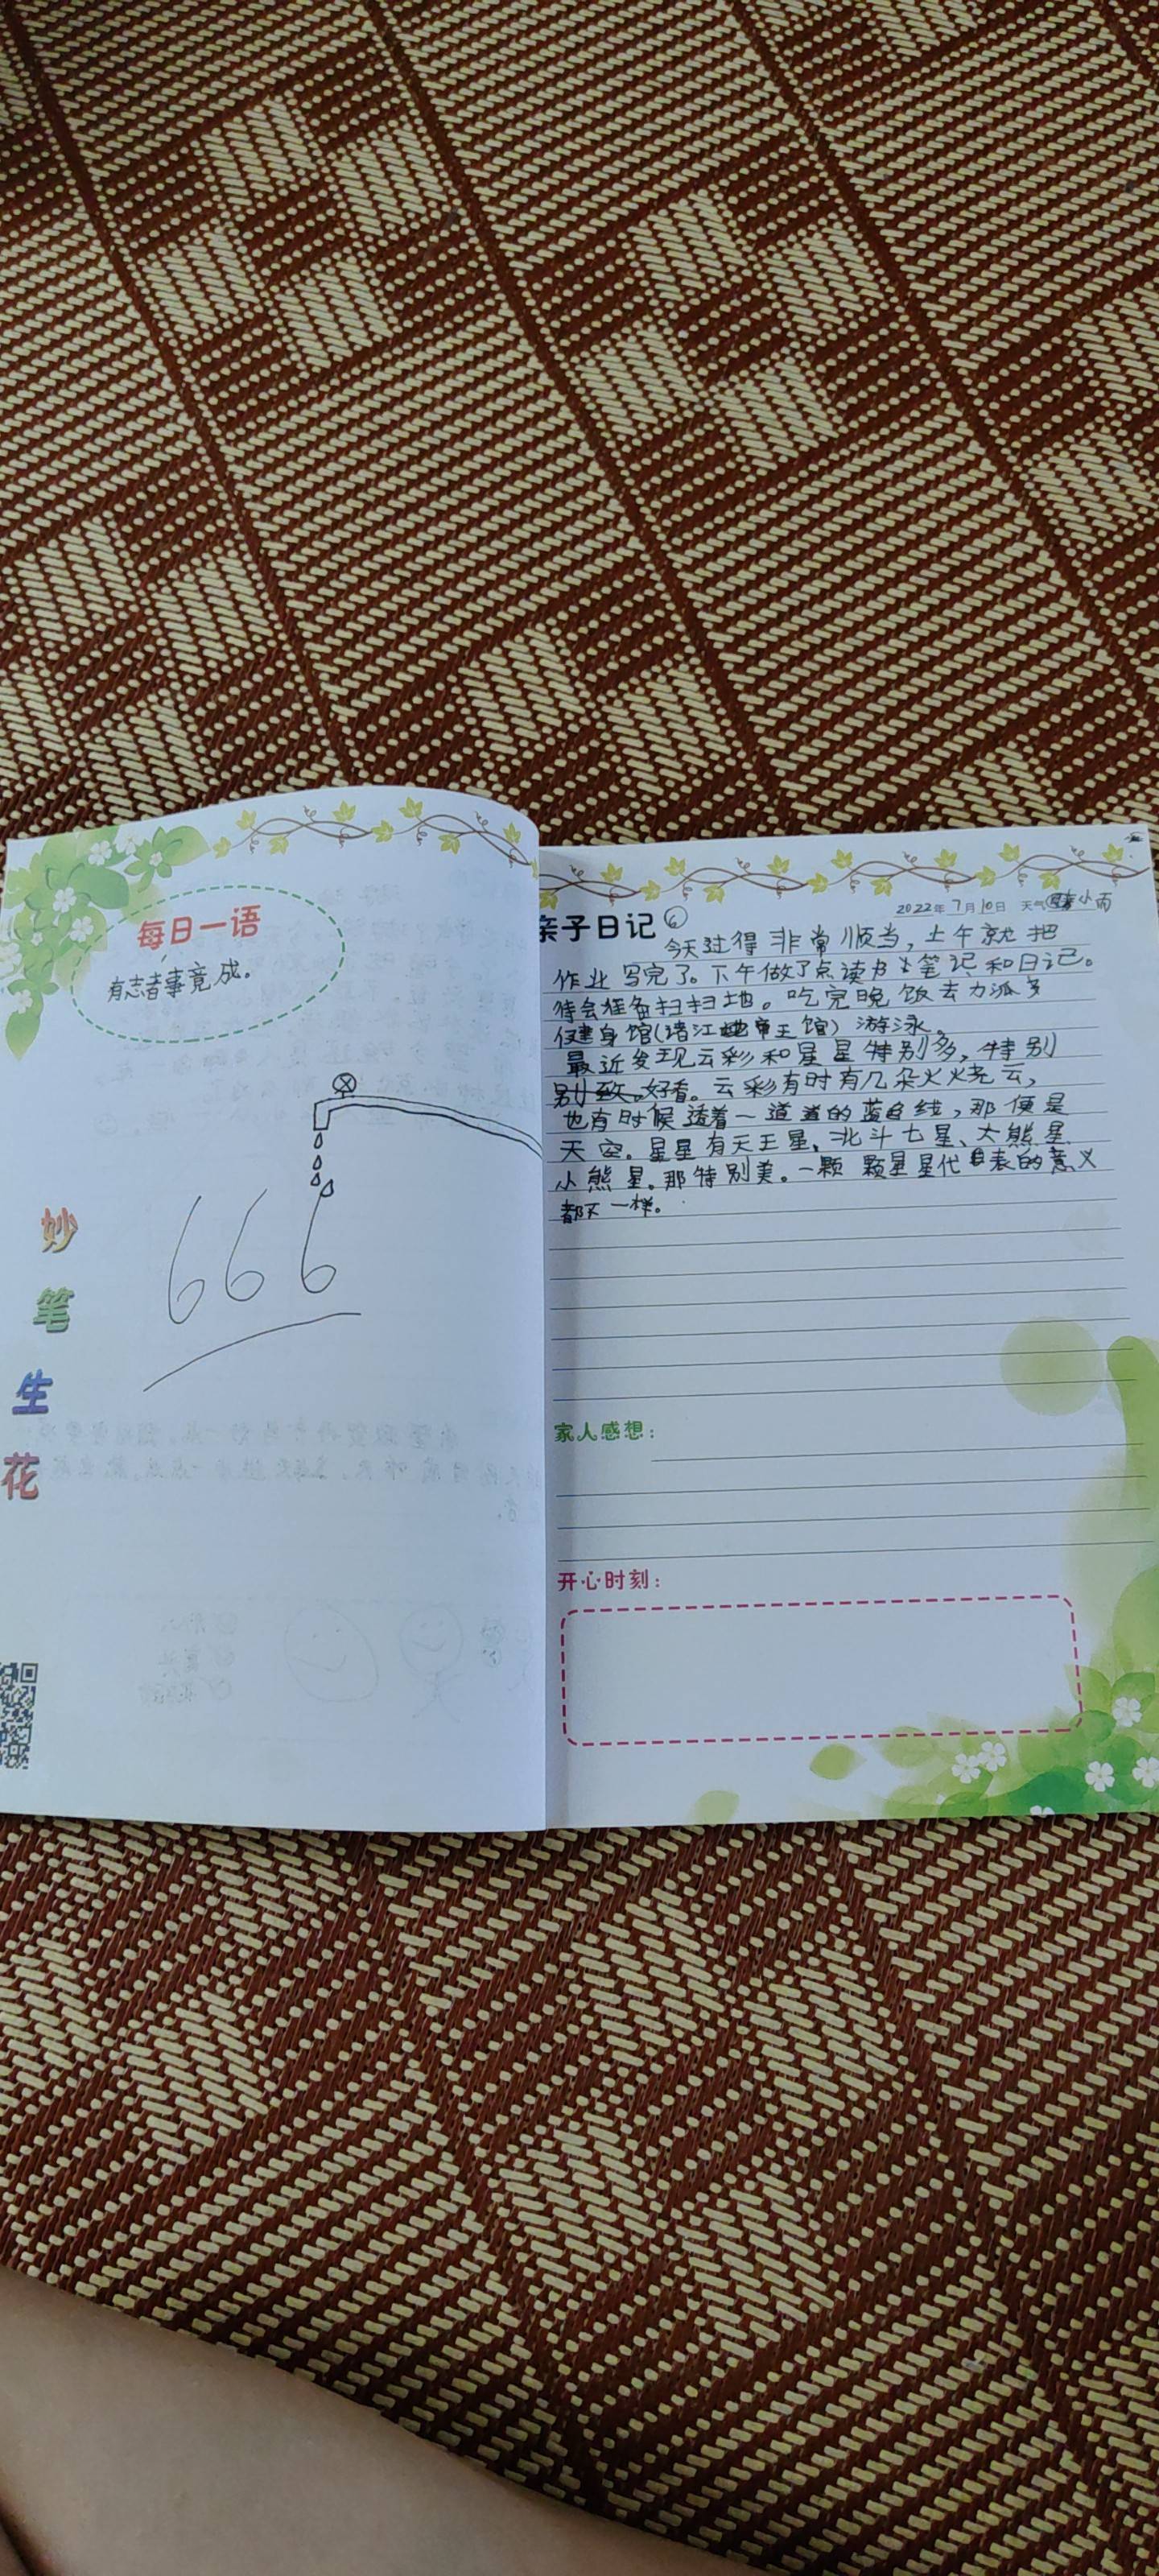 每日一语
有志者事竟成。
妙
笔
生
花
666
亲子日记 ⑥
2022年7月10日 天气 小雨
今天过得非常顺当，上午就把
作业写完了。下午做了点读书笔记和日记。
待会准备扫扫地。吃完晚饭去力派多
健身馆(诸江地帝王馆)游泳。
最近发现云彩和星星特别多，特别
好看。云彩有时有几朵火火烧云，
也有时候透着一道道的蓝色线，那便是
天空。星星有天王星、北斗七星、大熊星
小熊星。那特别美。一颗颗星星代表的意义
都不一样。
家人感想：
开心时刻：